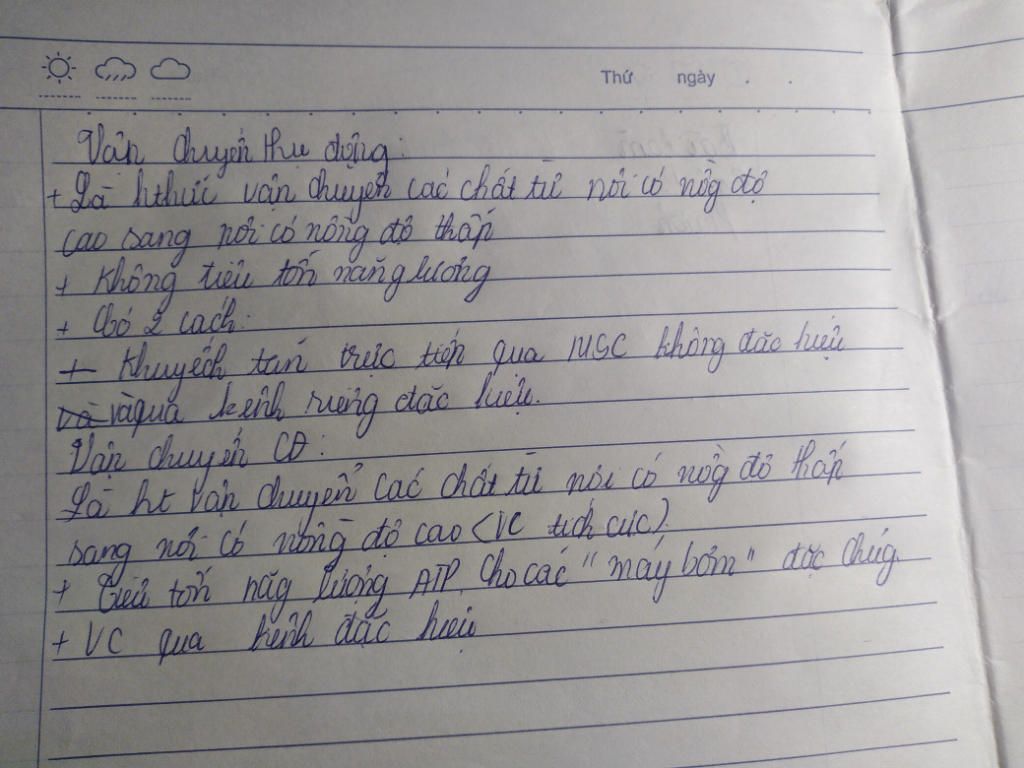 Thứ ngày . .
Vận chuyển thụ động:
+ Là hthức vận chuyển các chất từ nơi có nồg độ
cao sang nơi có nồng độ thấp
+ Không tiêu tốn năng lượng
+ Có 2 cách:
+ Khuyếch tán trực tiếp qua MSC không đặc hiệu
và qua kênh riêng đặc hiệu.
Vận chuyển CĐ:
Là ht vận chuyển các chất từ nơi có nồg độ thấp
sang nơi có nồng độ cao (VC tích cực)
+ Tiêu tốn năg lượng ATP, cho các "máy bơm" đặc chủg
+ VC qua kênh đặc hiệu